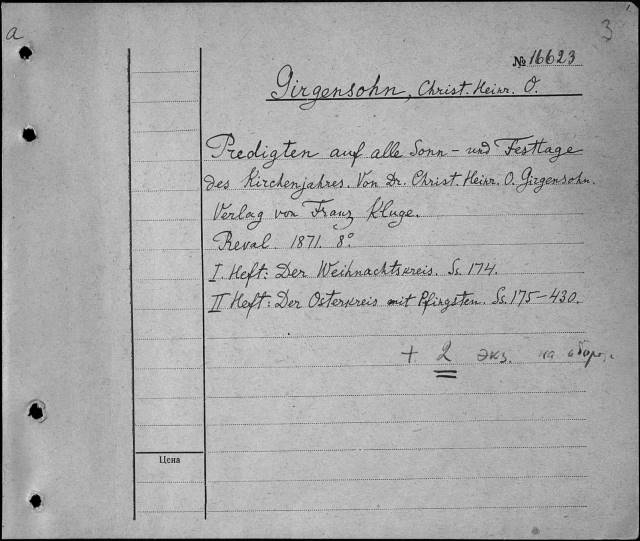 a
3
№ 16623
Girgensohn, Christ. Heinr. O.
Predigten auf alle Sonn- und Festtage
des Kirchenjahres. Von Dr. Christ. Heinr. O. Girgensohn.
Verlag von Franz Kluge.
Reval 1871. 8°.
I Heft: Der Weihnachtskreis. Ss. 174.
II Heft: Der Osterkreis mit Pfingsten. Ss. 175-430.
+ 2 экз. на оборо.
Цена